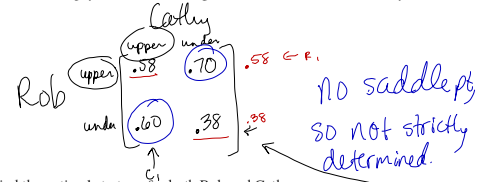 Cathy
upper under
Rob upper .58 .70 .58 ← R₁
under .60 .38 .38
C₁
no saddle pt,
so not strictly
determined.